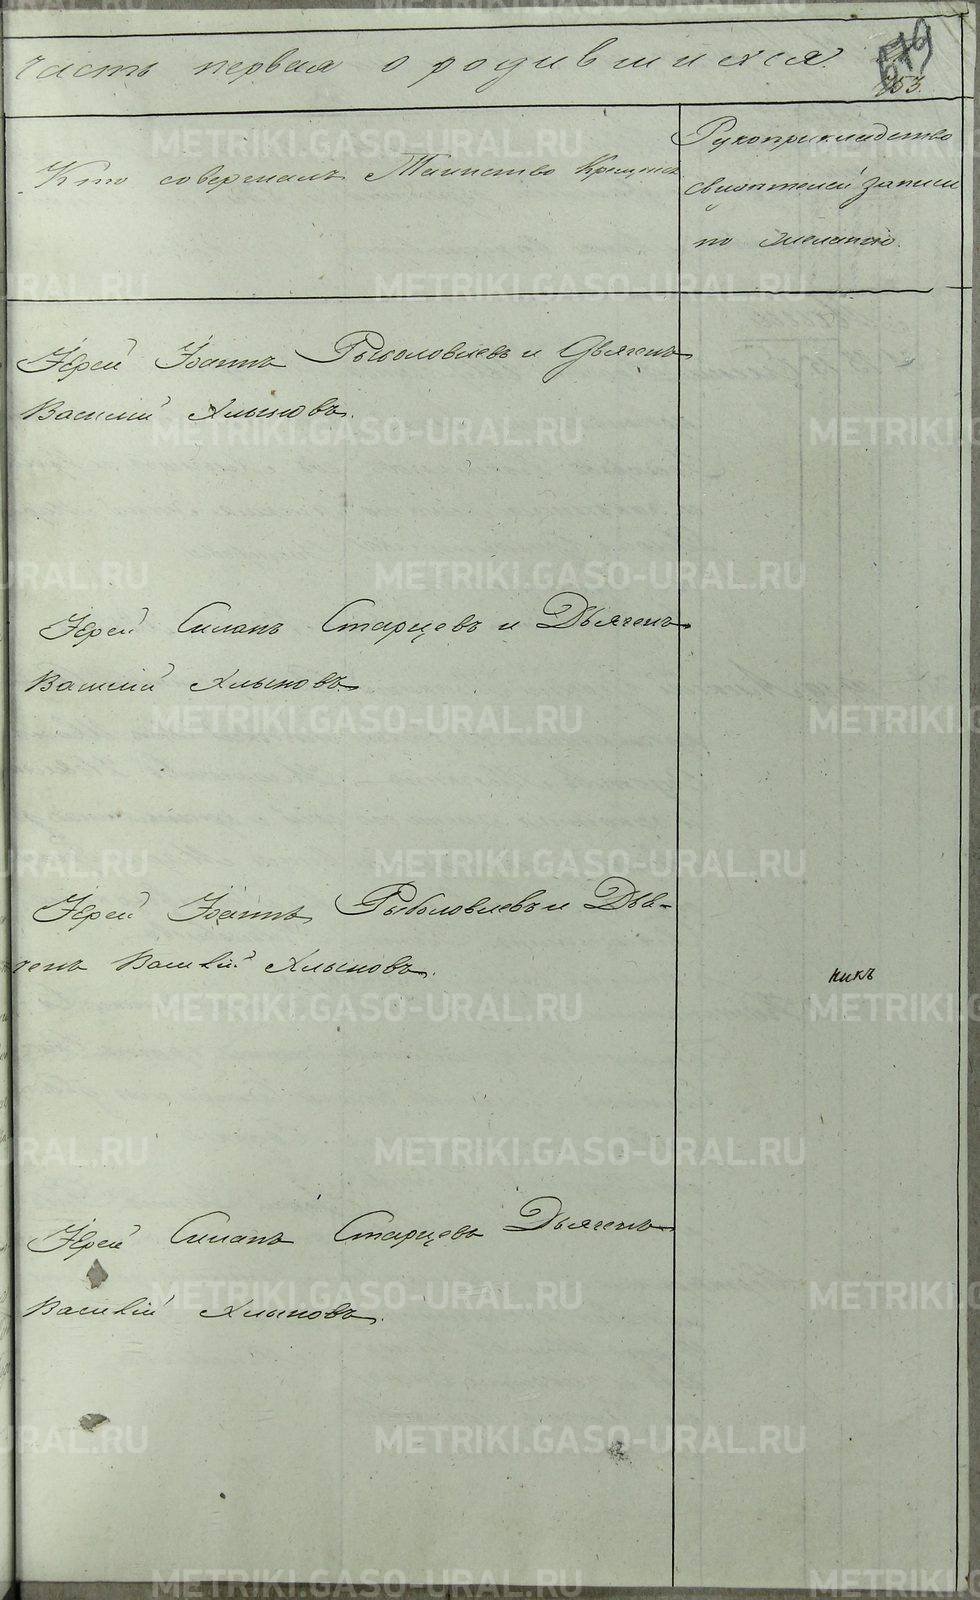 часть первая о родившихся.
679
753.
Кто совершалъ Таинство Крещенія
Рукоприкладство
свидѣтелей записи
по желанію.
Іерей Іоаннъ Рыболовлевъ и Дьячекъ
Василій Хлыновъ.
Іерей Силанъ Старцевъ и Дьячекъ
Василій Хлыновъ
Іерей Іоаннъ Рыболовлевъ и Дья-
чекъ Василій Хлыновъ.
никъ
Іерей Силанъ Старцевъ Дьячекъ
Василій Хлыновъ.
METRIKI.GASO-URAL.RU